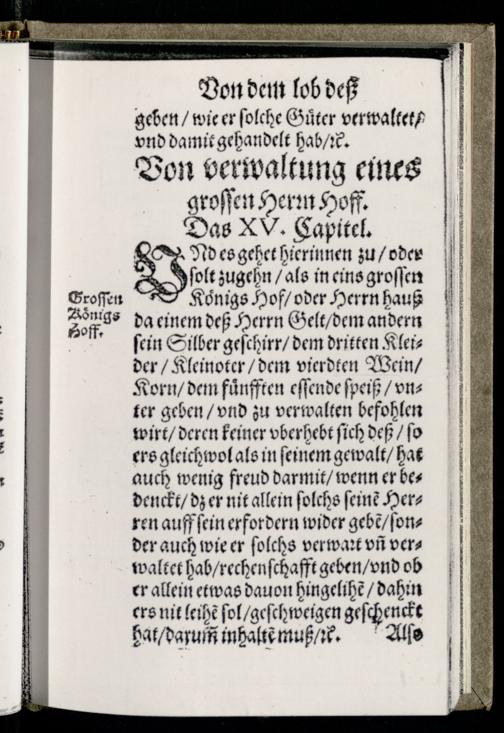 Von dem lob deß
geben / wie er solche Güter verwaltet /
vnd damit gehandelt hab / ꝛc.
Von verwaltung eines
grossen Herrn Hoff.
Das XV. Capitel.
VNd es gehet hierinnen zu / oder
solt zugehn / als in eins grossen
Königs Hof / oder Herrn hauß
Grossen
Königs
Hoff.
da einem deß Herrn Gelt / dem andern
sein Silber geschirr / dem dritten Klei-
der / Kleinoter / dem vierdten Wein /
Korn / dem fünfften essende speiß / vn-
ter geben / vnd zu verwalten befohlen
wirt / deren keiner vberhebt sich deß / so
ers gleichwol als in seinem gewalt / hat
auch wenig freud darmit / wenn er be-
denckt / dz er nit allein solchs seinē Her-
ren auff sein erfordern wider gebē / son-
der auch wie er solchs verwart vñ ver-
waltet hab / rechenschafft geben / vnd ob
er allein etwas dauon hingelihē / dahin
ers nit leihē sol / geschweigen geschenckt
hat / darum̃ inhaltē muß / ꝛc. Also